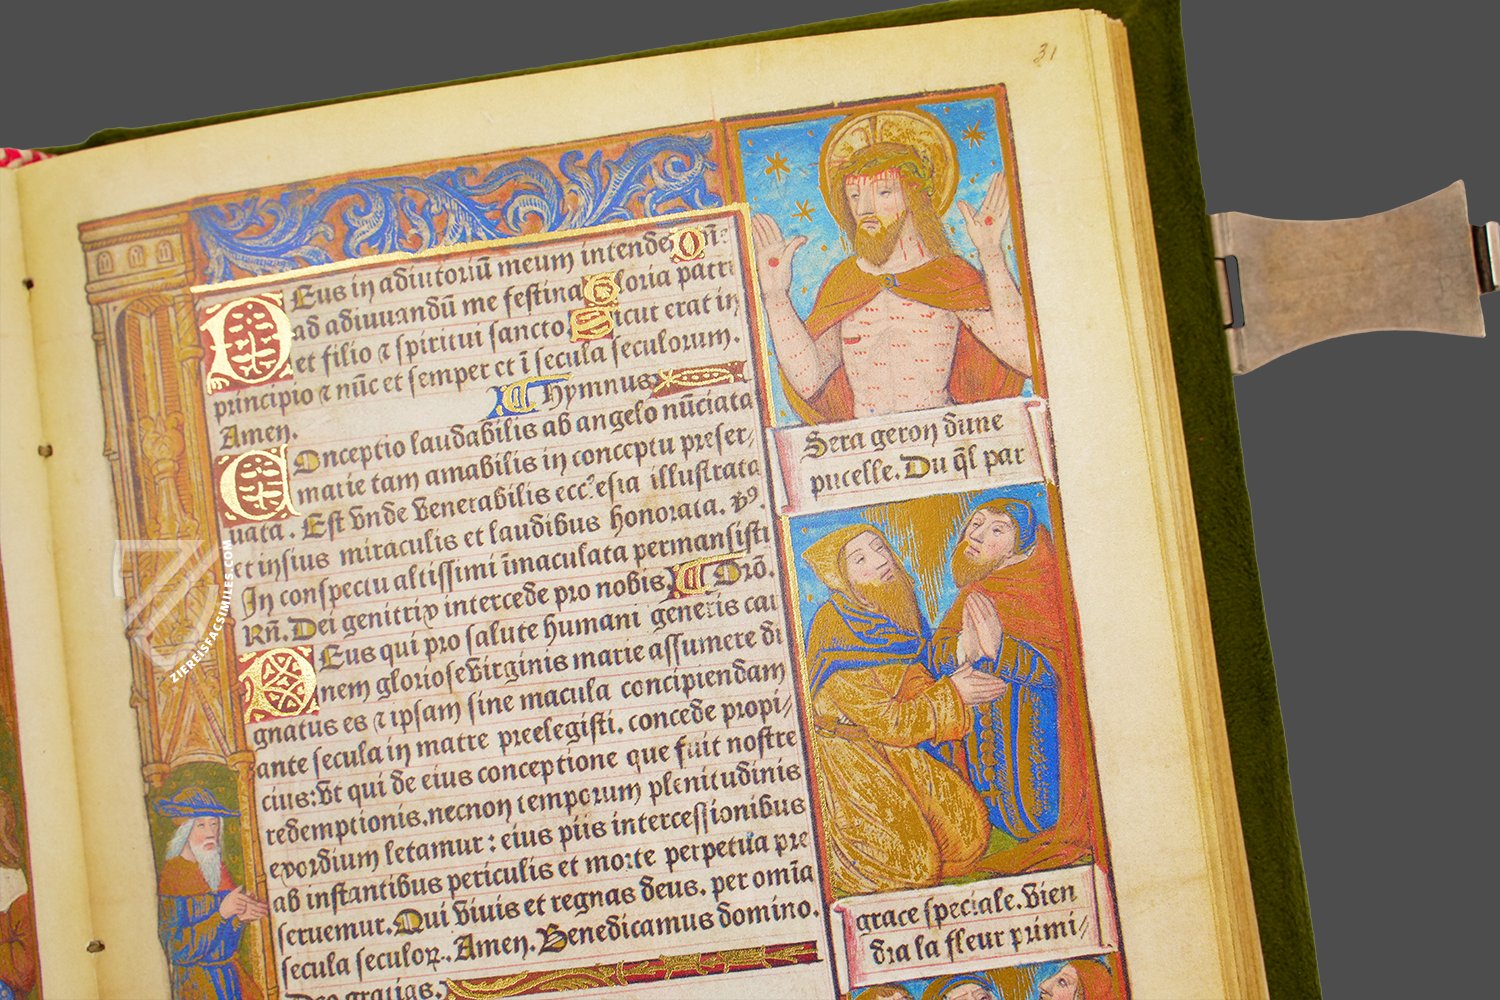 31
Eus in adiutoriū meum intende Dn̄e
ad adiuuandū me festina Gloria patri
et filio ⁊ spiritui sancto Sicut erat in
principio ⁊ nūc et semper et ī secula seculorum.
Amen. ¶ Hymnus
Conceptio laudabilis ab angelo nūciata
marie tam amabilis in conceptu preser/
uata. Est vnde venerabilis ecclesia illustrata
et insius miraculis et laudibus honorata. v̓9.
In conspectu altissimi īmaculata permansisti
Rn̄. Dei genitrix intercede pro nobis. ¶ Orō.
Deus qui pro salute humani generis car
nem gloriose virginis marie assumere di
gnatus es ⁊ ipsam sine macula concipiendam
ante secula in matre preelegisti. concede propi/
cius: vt qui de eius conceptione que fuit nostre
redemptionis. necnon temporum plenitudinis
exordium letamur: eius piis intercessionibus
ab instantibus periculis et morte perpetua pre
seruemur. Qui viuis et regnas deus. per omīa
secula seculoꝝ. Amen. Benedicamus domino.
Deo gratias.
Sera geron dune
pucelle. Du q̄l par
grace speciale. vien
dra la fleur primi/
ZIEREISFACSIMILES.COM